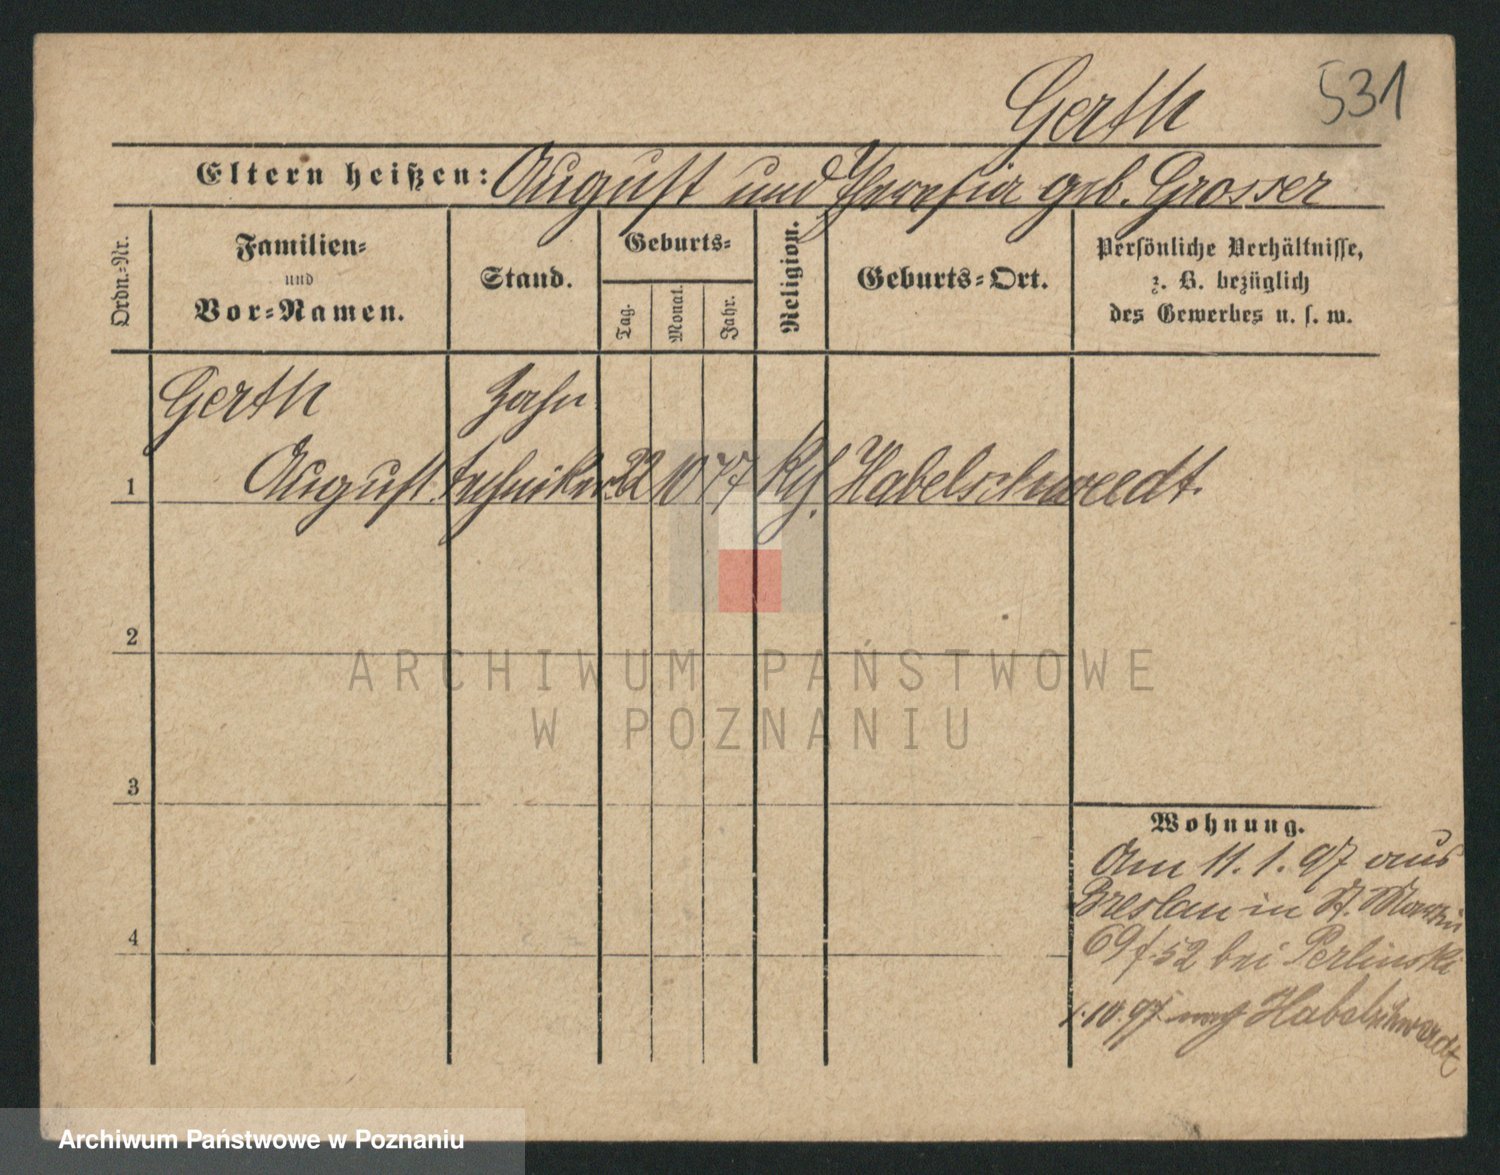 531
Gerth
Eltern heißen: August und Theresia geb. Grosser
Ordn.=Nr.
Familien=
und
Vor=Namen.
Stand.
Geburts=
Tag.
Monat.
Jahr.
Religion.
Geburts=Ort.
Persönliche Verhältnisse,
z. B. bezüglich
des Gewerbes u. s. w.
Gerth Zahn
1 August techniker 22 10 77 kth. Habelschweedt.
2
3
4
Wohnung.
Am 11. 1. 97 aus
Breslau in St. Martin
69/52 bei Perlinski
1.10.97 nach Habelschwerdt
ARCHIWUM PAŃSTWOWE
W POZNANIU
Archiwum Państwowe w Poznaniu